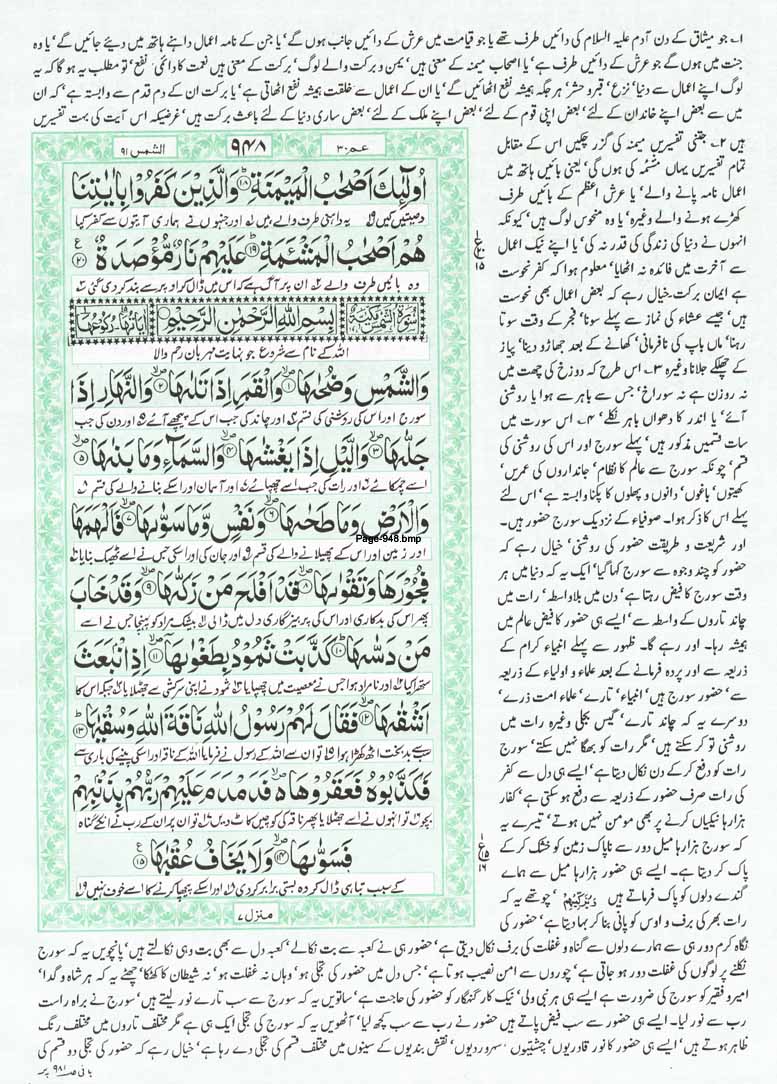 ۱؎ جو میثاق کے دن آدم علیہ السلام کی دائیں طرف تھے یا جو قیامت میں عرش کے دائیں جانب ہوں گے‘ یا جن کے نامہ اعمال داہنے ہاتھ میں دیئے جائیں گے‘ یا وہ
جنت میں ہوں گے جو عرش کے دائیں طرف ہے‘ یا اصحاب میمنہ کے معنی ہیں‘ یمن و برکت والے لوگ‘ برکت کے معنی ہیں نعمت کا دائمی نفع‘ تو مطلب یہ ہوگا کہ یہ
لوگ اپنے اعمال سے دنیا‘ نزع‘ قبر و حشر‘ ہر جگہ ہمیشہ نفع اٹھائیں گے‘ یا ان کے اعمال سے خلقت ہمیشہ نفع اٹھاتی ہے‘ یا برکت ان کے دم قدم سے وابستہ ہے‘ کہ ان
میں سے بعض اپنے خاندان کے لئے‘ بعض اپنی قوم کے لئے‘ بعض اپنے ملک کے لئے‘ بعض ساری دنیا کے لئے باعث برکت ہیں‘ غرضیکہ اس آیت کی بہت تفسیریں
عم ۳۰
۹۴۸
الشمس ۹۱
اُولٰٓئِكَ اَصْحٰبُ الْمَيْمَنَةِ ۱۸ وَالَّذِيْنَ كَفَرُوْا بِاٰيٰتِنَا
وصیتیں کیں یہ داہنی طرف والے ہیں اور جنہوں نے ہماری آیتوں سے کفر کیا
هُمْ اَصْحٰبُ الْمَشْـَٔمَةِ ۱۹ عَلَيْهِمْ نَارٌ مُّؤْصَدَةٌ ۲۰
وہ بائیں طرف والے ان پر آگ ہے کہ اس میں ڈال کر اوپر سے بند کر دی گئی
سُوْرَةُ الشَّمْسِ مَكِّيَّةٌ
بِسْمِ اللّٰهِ الرَّحْمٰنِ الرَّحِيْمِ
اللہ کے نام سے شروع جو نہایت مہربان رحم والا
وَالشَّمْسِ وَضُحٰىهَا ۱ وَالْقَمَرِ اِذَا تَلٰىهَا ۲ وَالنَّهَارِ اِذَا
سورج اور اس کی روشنی کی قسم اور چاند کی جب اس کے پیچھے آئے اور دن کی جب
جَلّٰىهَا ۳ وَالَّيْلِ اِذَا يَغْشٰىهَا ۴ وَالسَّمَآءِ وَمَا بَنٰىهَا ۵
اسے چمکائے اور رات کی جب اسے چھپائے اور آسمان اور اسکے بنانے والے کی قسم
وَالْاَرْضِ وَمَا طَحٰىهَا ۶ وَنَفْسٍ وَّمَا سَوّٰىهَا ۷ فَاَلْهَمَهَا
Page-948.bmp
اور زمین اور اس کے پھیلانے والے کی قسم اور جان کی اور اسکی جس نے اسے ٹھیک بنایا
فُجُوْرَهَا وَتَقْوٰىهَا ۸ قَدْ اَفْلَحَ مَنْ زَكّٰىهَا ۹ وَقَدْ خَابَ
پھر اس کی بدکاری اور اس کی پرہیزگاری دل میں ڈالی بیشک مراد کو پہنچا جس نے اسے
مَنْ دَسّٰىهَا ۱۰ كَذَّبَتْ ثَمُوْدُ بِطَغْوٰىهَا ۱۱ اِذِ انْۢبَعَثَ
ستھرا کیا اور نامراد ہوا جس نے معصیت میں چھپایا ثمود نے اپنی سرکشی سے جھٹلایا جبکہ اس کا
اَشْقٰىهَا ۱۲ فَقَالَ لَهُمْ رَسُوْلُ اللّٰهِ نَاقَةَ اللّٰهِ وَسُقْيٰهَا ۱۳
سب سے بدبخت اٹھ کھڑا ہوا تو ان سے اللہ کے رسول نے فرمایا اللہ کے ناقہ اور اسکی پینے کی باری سے
فَكَذَّبُوْهُ فَعَقَرُوْهَا فَدَمْدَمَ عَلَيْهِمْ رَبُّهُمْ بِذَنْۢبِهِمْ
بچو تو انہوں نے اسے جھٹلایا پھر ناقہ کی کوچیں کاٹ دیں تو ان پر ان کے رب نے انکے گناہ
فَسَوّٰىهَا ۱۴ وَلَا يَخَافُ عُقْبٰهَا ۱۵
کے سبب تباہی ڈال کر وہ بستی برابر کر دی اور اسکے پیچھا کرنے کا اسے خوف نہیں
منزل ۷
ہیں ۲؎ جتنی تفسیریں میمنہ کی گزر چکیں اس کے مقابل
تمام تفسیریں یہاں مشئمہ کی ہوں گی‘ یعنی بائیں ہاتھ میں
اعمال نامہ پانے والے‘ یا عرش اعظم کے بائیں طرف
کھڑے ہونے والے وغیرہ‘ یا وہ منحوس لوگ ہیں‘ کیونکہ
انہوں نے دنیا کی زندگی کی قدر نہ کی‘ یا اپنے نیک اعمال
سے آخرت میں فائدہ نہ اٹھایا‘ معلوم ہوا کہ کفر نحوست
ہے ایمان برکت‘ خیال رہے کہ بعض اعمال بھی نحوست
ہیں‘ جیسے عشاء کی نماز سے پہلے سونا‘ فجر کے وقت سوتا
رہنا‘ ماں باپ کی نافرمانی‘ کھانے کے بعد جھاڑو دینا‘ پیاز
کے چھلکے جلانا وغیرہ ۳؎ اس طرح کہ دوزخ کی چھت میں
نہ روزن ہے نہ سوراخ‘ جس سے باہر سے ہوا یا روشنی
آئے‘ یا اندر کا دھواں باہر نکلے‘ ۴؎ اس سورت میں
سات قسمیں مذکور ہیں‘ پہلے سورج اور اس کی روشنی کی
قسم‘ چونکہ سورج سے عالم کا نظام‘ جانداروں کی عمریں‘
کھیتوں‘ باغوں‘ دانوں و پھلوں کا پکنا وابستہ ہے‘ اس لئے
پہلے اس کا ذکر ہوا۔ صوفیاء کے نزدیک سورج حضور ہیں۔
اور شریعت و طریقت حضور کی روشنی‘ خیال رہے کہ
حضور کو چند وجوہ سے سورج کہا گیا‘ ایک یہ کہ دنیا میں ہر
وقت سورج کا فیض رہتا ہے‘ دن میں بلاواسطہ‘ رات میں
چاند تاروں کے واسطہ سے‘ ایسے ہی حضور کا فیض عالم میں
ہمیشہ رہا۔ اور رہے گا۔ ظہور سے پہلے انبیاء کرام کے
ذریعہ سے اور پردہ فرمانے کے بعد علماء و اولیاء کے ذریعہ
سے‘ حضور سورج ہیں‘ انبیاء‘ تارے‘ علماء امت ذرے‘
دوسرے یہ کہ چاند تارے‘ گیس بجلی وغیرہ رات میں
روشنی تو کر سکتے ہیں‘ مگر رات کو بھگا نہیں سکتے‘ سورج
رات کو دفع کر کے دن نکال دیتا ہے‘ ایسے ہی دل سے کفر
کی رات صرف حضور کے ذریعہ سے دفع ہو سکتی ہے‘ کفار
ہزارہا نیکیاں کرنے پر بھی مومن نہیں ہوتے‘ تیسرے یہ
کہ سورج ہزارہا میل دور سے ناپاک زمین کو خشک کر کے
پاک کر دیتا ہے۔ ایسے ہی حضور ہزارہا میل سے ہمارے
گندے دلوں کو پاک فرماتے ہیں وَيُزَكِّيْهِمْ چوتھے یہ کہ
رات بھر کی برف و اوس کو پانی بنا کر بہا دیتا ہے‘ حضور کی
نگاہ کرم دور ہی سے ہمارے دلوں سے گناہ و غفلت کی برف نکال دیتی ہے‘ حضور ہی نے کعبہ سے بت نکالے‘ کعبہ دل سے بھی بت وہی نکالتے ہیں‘ پانچویں یہ کہ سورج
نکلنے پر لوگوں کی غفلت دور ہو جاتی ہے‘ چوروں سے امن نصیب ہوتا ہے‘ جس دل میں حضور کی تجلی ہو‘ وہاں نہ غفلت ہو‘ نہ شیطان کا کھٹکا‘ چھٹے یہ کہ ہر شاہ و گدا‘
امیر و فقیر کو سورج کی ضرورت ہے ایسے ہی ہر نبی ولی‘ نیک کار گنہگار کو حضور کی حاجت ہے‘ ساتویں یہ کہ سورج سے سب تارے نور لیتے ہیں‘ سورج نے براہ راست
رب سے نور لیا۔ ایسے ہی حضور سے سب فیض پاتے ہیں حضور نے رب سے سب کچھ لیا‘ آٹھویں یہ کہ سورج کی تجلی ایک ہی ہے مگر مختلف تاروں میں مختلف رنگ
ظاہر ہوتے ہیں‘ ایسے ہی حضور کا نور قادریوں‘ چشتیوں‘ سہروردیوں‘ نقش بندیوں کے سینوں میں مختلف قسم کی تجلی دے رہا ہے‘ خیال رہے کہ حضور کی تجلی دو قسم کی
باقی صـ ۹۸۱ پر